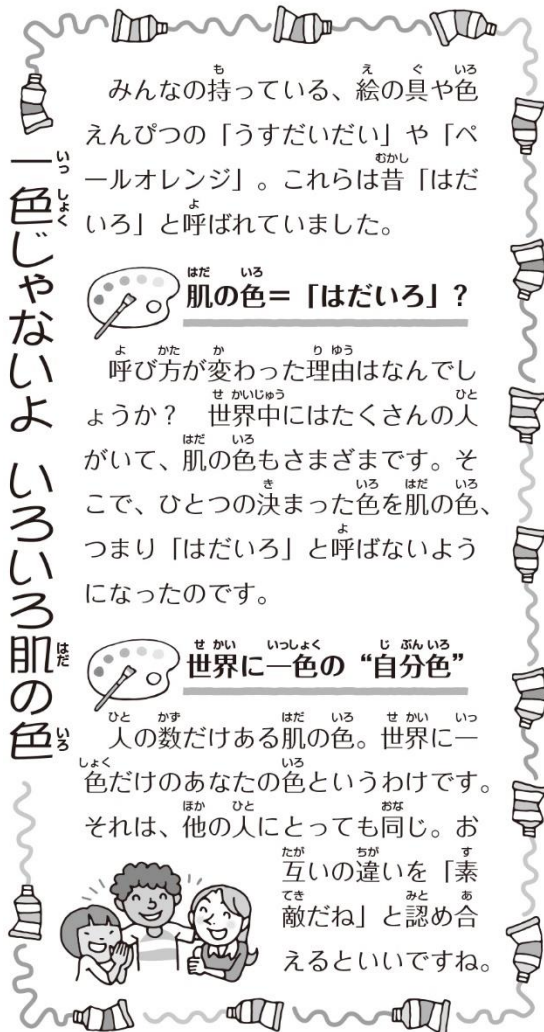 一色じゃないよ いろいろ肌の色
みんなの持っている、絵の具や色
えんぴつの「うすだいだい」や「ペ
ールオレンジ」。これらは昔「はだ
いろ」と呼ばれていました。
肌の色=「はだいろ」?
呼び方が変わった理由はなんでし
ょうか? 世界中にはたくさんの人
がいて、肌の色もさまざまです。そ
こで、ひとつの決まった色を肌の色、
つまり「はだいろ」と呼ばないよう
になったのです。
世界に一色の“自分色”
人の数だけある肌の色。世界に一
色だけのあなたの色というわけです。
それは、他の人にとっても同じ。お
互いの違いを「素
敵だね」と認め合
えるといいですね。